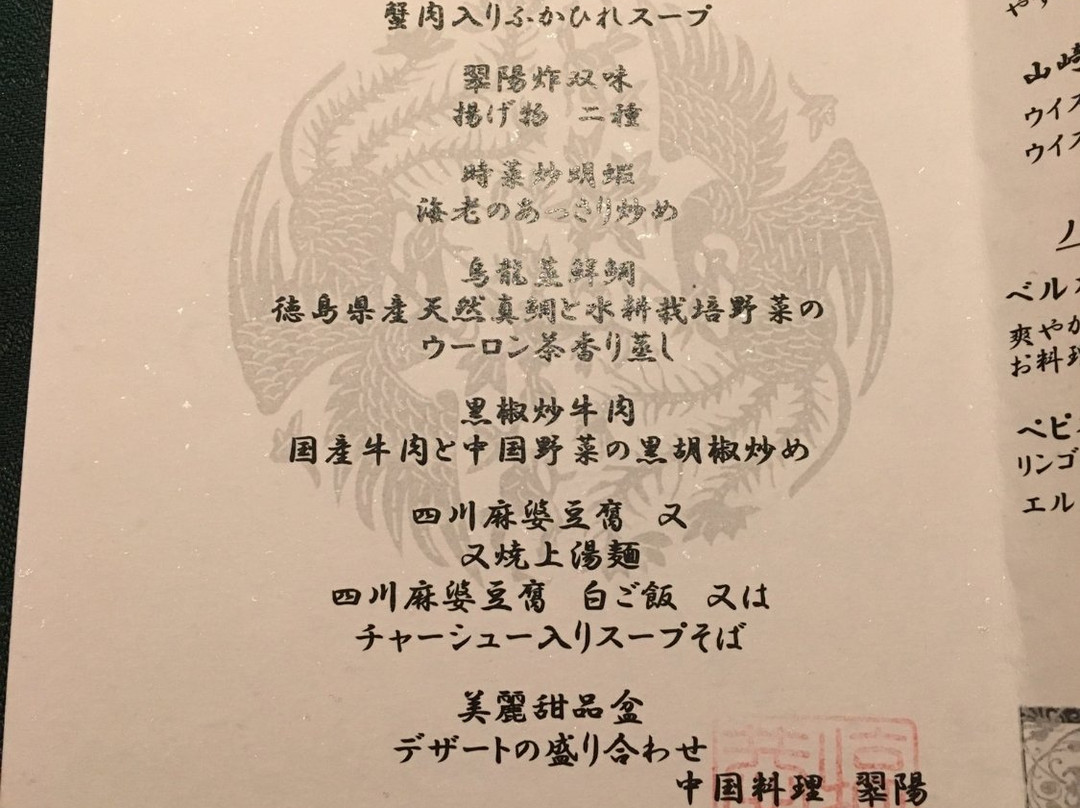 蟹肉入りふかひれスープ
翆陽炸双味
揚げ物 二種
時菜炒明蝦
海老のあっさり炒め
烏龍蒸鮮鯛
徳島県産天然真鯛と水耕栽培野菜の
ウーロン茶香り蒸し
黒椒炒牛肉
国産牛肉と中国野菜の黒胡椒炒め
四川麻婆豆腐 又
叉焼上湯麺
四川麻婆豆腐 白ご飯 又は
チャーシュー入りスープそば
美麗甜品盆
デザートの盛り合わせ
中国料理 翆陽
やす
山崎
ウイス
ウイス
ベル
爽やか
お料理
ペピ
リンゴ
エル